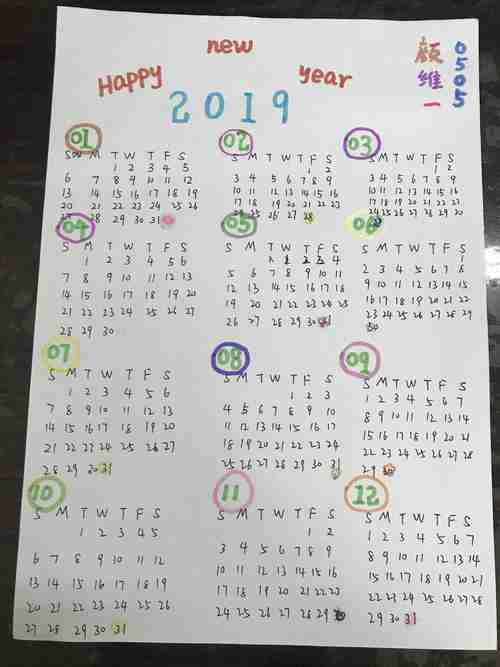 new
Happy year
2019
颜维一
0505
01
Sun M T W T F S
1 2 3 4 5
6 7 8 9 10 11 12
13 14 15 16 17 18 19
20 21 22 23 24 25 26
27 28 29 30 31
02
S M T W T F S
1 2
3 4 5 6 7 8 9
10 11 12 13 14 15 16
17 18 19 20 21 22 23
24 25 26 27 28
03
S M T W T F S
1 2
3 4 5 6 7 8 9
10 11 12 13 14 15 16
17 18 19 20 21 22 23
24 25 26 27 28 29 30
04
S M T W T F S
1 2 3 4 5 6
7 8 9 10 11 12 13
14 15 16 17 18 19 20
21 22 23 24 25 26 27
28 29 30
05
S M T W T F S
1 2 3 4
5 6 7 8 9 10 11
12 13 14 15 16 17 18
19 20 21 22 23 24 25
26 27 28 29 30 31
06
S M T W T F S
1
2 3 4 5 6 7 8
9 10 11 12 13 14 15
16 17 18 19 20 21 22
23 24 25 26 27 28 29
30
07
S M T W T F S
1 2 3 4 5 6
7 8 9 10 11 12 13
14 15 16 17 18 19 20
21 22 23 24 25 26 27
28 29 30 31
08
S M T W T F S
1 2 3
4 5 6 7 8 9 10
11 12 13 14 15 16 17
18 19 20 21 22 23 24
25 26 27 28 29 30 31
09
S M T W T F S
1 2 3 4 5 6 7
8 9 10 11 12 13 14
15 16 17 18 19 20 21
22 23 24 25 26 27 28
29 30
10
S M T W T F S
1 2 3 4 5
6 7 8 9 10 11 12
13 14 15 16 17 18 19
20 21 22 23 24 25 26
27 28 29 30 31
11
S M T W T F S
1 2
3 4 5 6 7 8 9
10 11 12 13 14 15 16
17 18 19 20 21 22 23
24 25 26 27 28 29
12
S M T W T F S
1 2 3 4 5 6 7
8 9 10 11 12 13 14
15 16 17 18 19 20 21
22 23 24 25 26 27 28
29 30 31